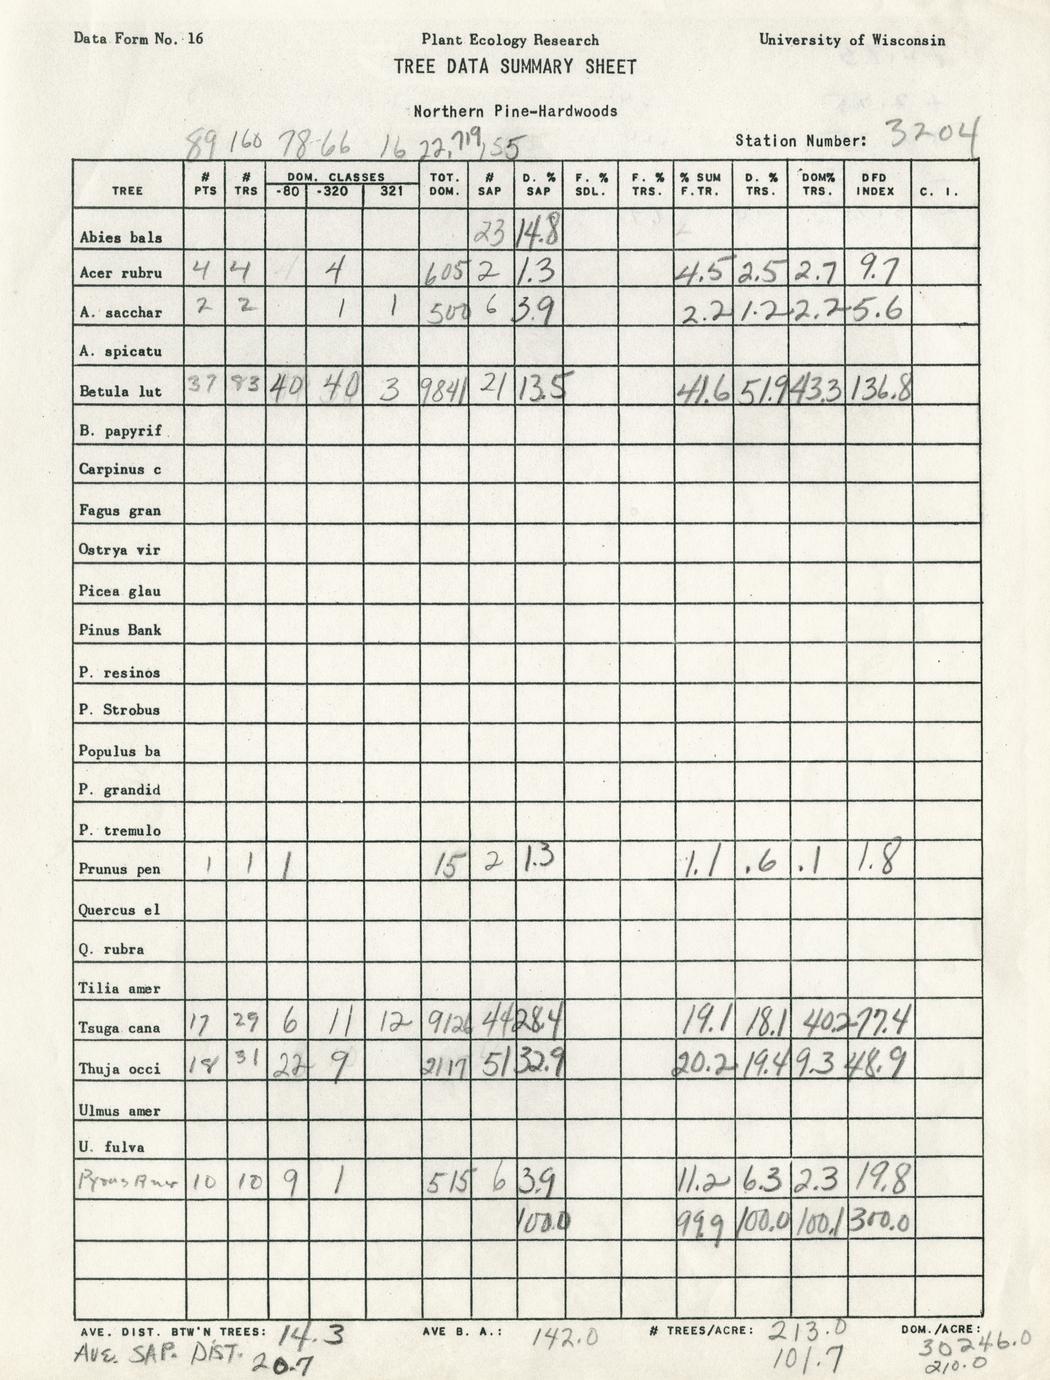 Data Form No. 16 Plant Ecology Research University of Wisconsin
TREE DATA SUMMARY SHEET
Northern Pine-Hardwoods
Station Number: 3204
89 160 78 66 16 22,719 155
TREE # PTS # TRS DOM. CLASSES -80 -320 321 TOT. DOM. # SAP D. % SAP F. % SDL. F. % TRS. % SUM F.TR. D. % TRS. DOM% TRS. DFD INDEX C. I.
Abies bals 23 14.8
Acer rubru 4 4 4 605 2 1.3 4.5 2.5 2.7 9.7
A. sacchar 2 2 1 1 500 6 3.9 2.2 1.2 2.2 5.6
A. spicatu
Betula lut 37 83 40 40 3 9841 21 13.5 41.6 51.9 43.3 136.8
B. papyrif
Carpinus c
Fagus gran
Ostrya vir
Picea glau
Pinus Bank
P. resinos
P. Strobus
Populus ba
P. grandid
P. tremulo
Prunus pen 1 1 1 15 2 1.3 1.1 .6 .1 1.8
Quercus el
Q. rubra
Tilia amer
Tsuga cana 17 29 6 11 12 9126 44 28.4 19.1 18.1 40.2 77.4
Thuja occi 18 31 22 9 2117 51 32.9 20.2 19.4 9.3 48.9
Ulmus amer
U. fulva
Pyrus Amer 10 10 9 1 515 6 3.9 11.2 6.3 2.3 19.8
100.0 99.9 100.0 100.1 300.0
AVE. DIST. BTW'N TREES: 14.3 AVE B. A.: 142.0 # TREES/ACRE: 213.0 DOM./ACRE: 30246.0
AVE. SAP. DIST. 20.7 101.7 210.0